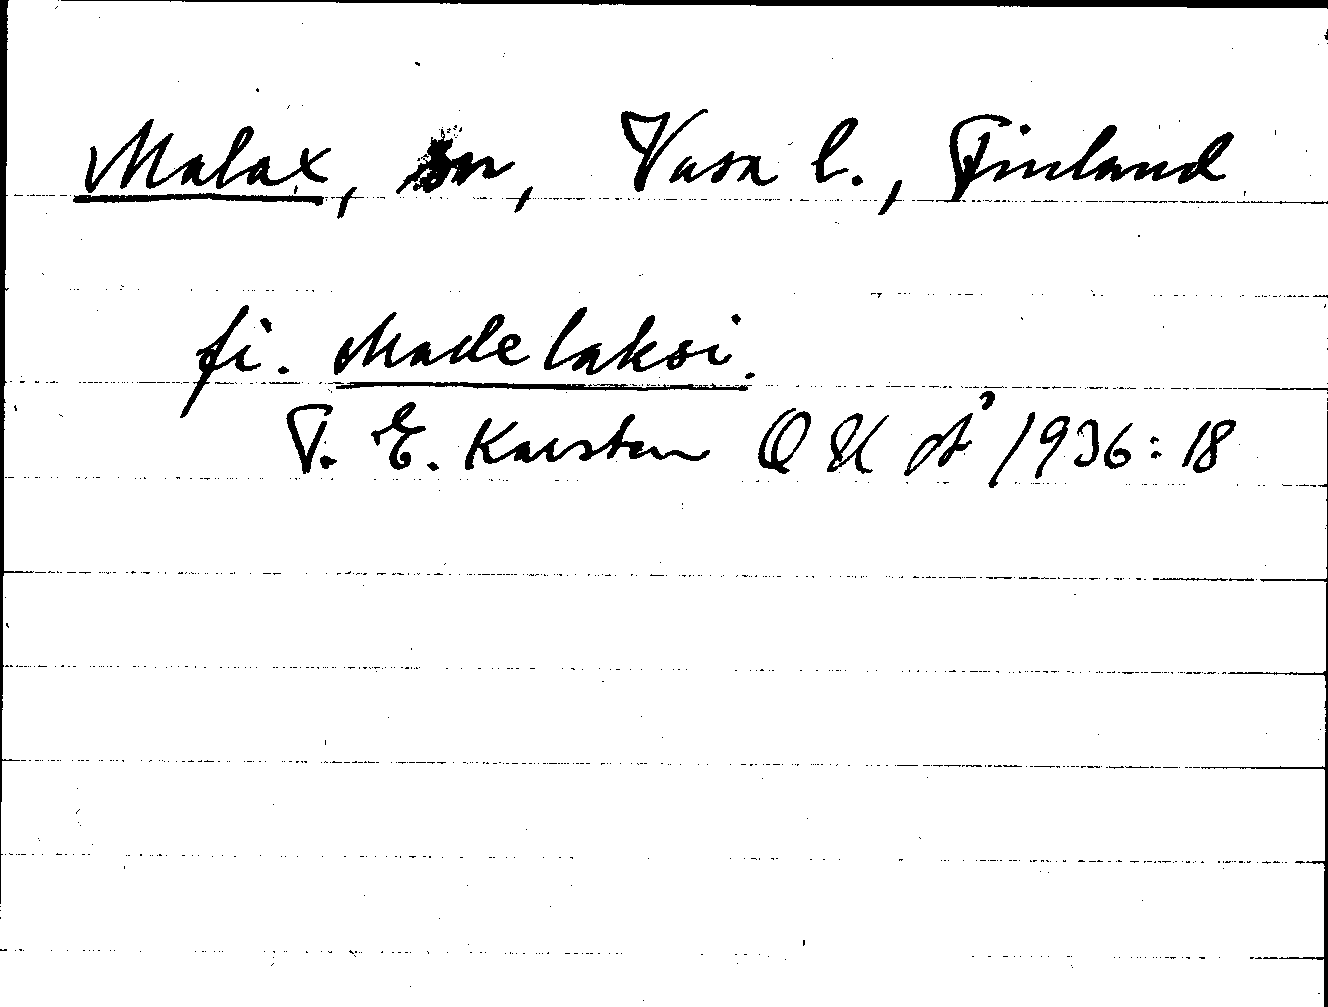 Malax, sn, Vasa l., Finland
fi. Madelaksi.
T. E. Karsten OUÅ 1936: 18